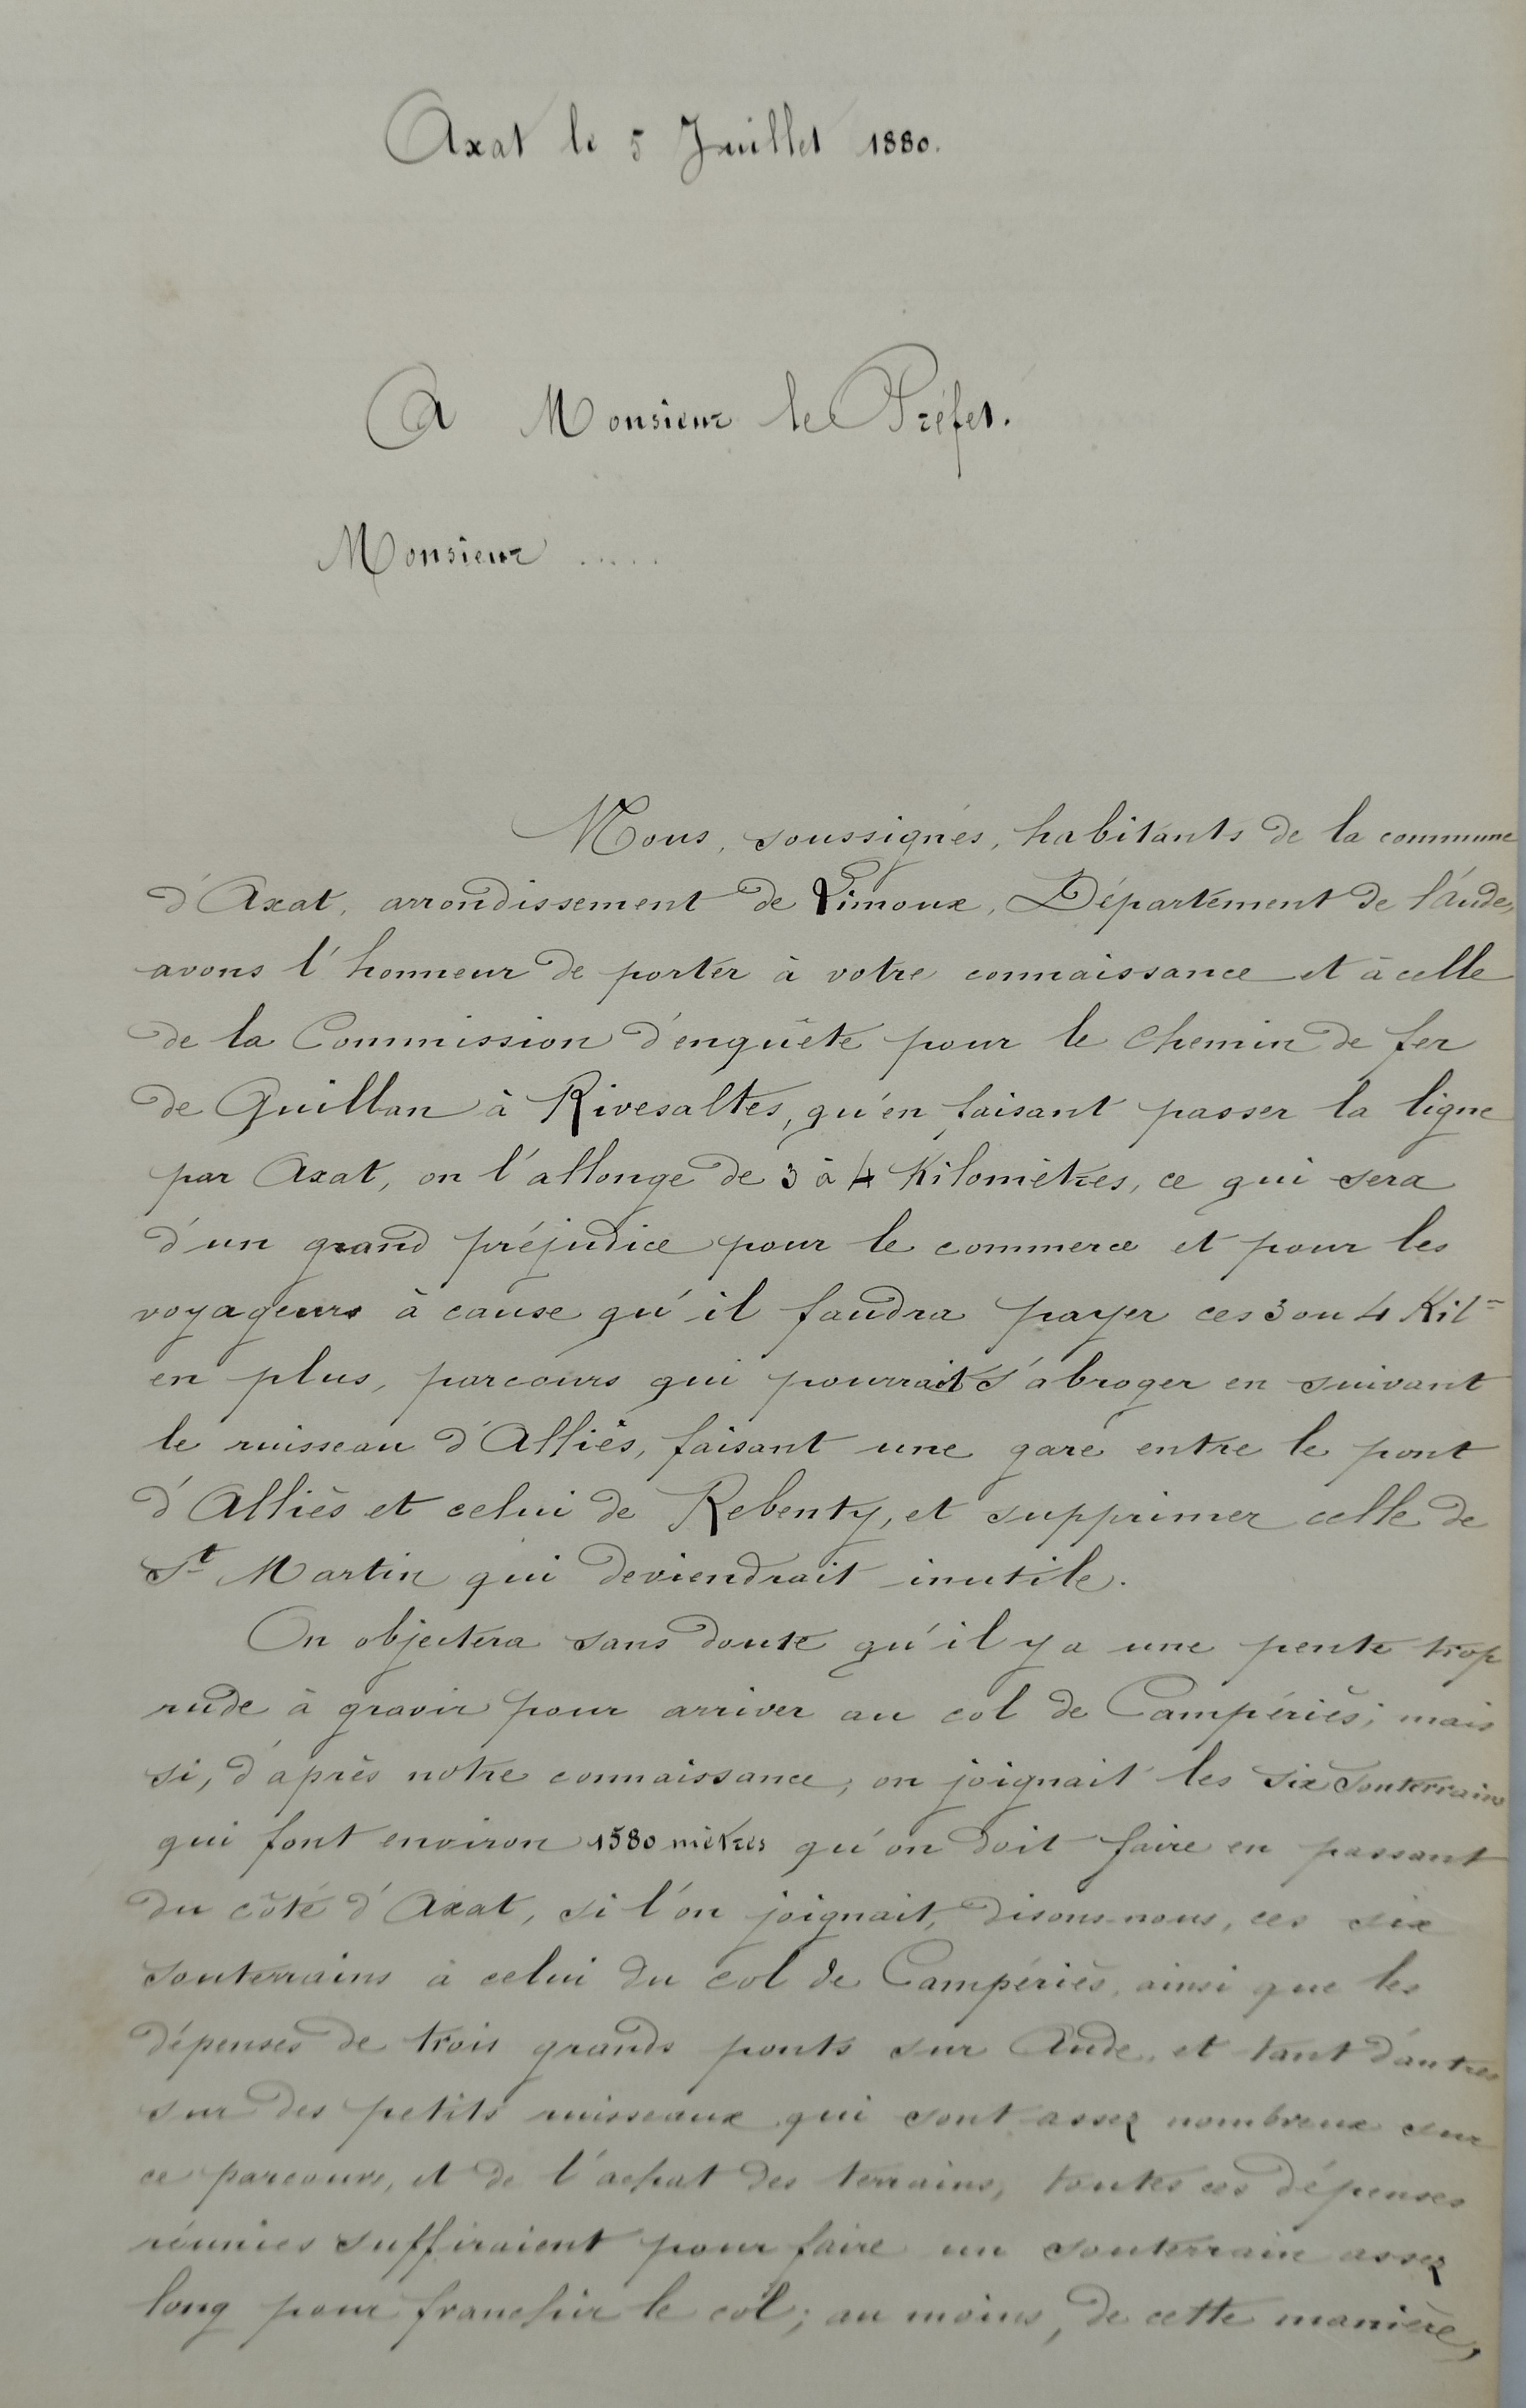 Axat le 5 Juillet 1880.
A Monsieur le Préfet.
Monsieur .....
Nous, soussignés, habitants de la commune
d'Axat, arrondissement de Limoux, Département de l'Aude,
avons l'honneur de porter à votre connaissance et à celle
de la Commission d'enquête pour le Chemin de fer
de Quillan à Rivesaltes, qu'en faisant passer la ligne
par Axat, on l'allonge de 3 à 4 Kilomètres, ce qui sera
d'un grand préjudice pour le commerce et pour les
voyageurs à cause qu'il faudra payer ces 3 ou 4 Kil=
en plus, parcours qui pourrait s'abroger en suivant
le ruisseau d'Alliès, faisant une gare entre le pont
d'Alliès et celui de Rebenty, et supprimer celle de
St Martin qui deviendrait inutile.
On objectera sans doute qu'il y a une pente trop
rude à gravir pour arriver au col de Campériès; mais
si, d'après notre connaissance, on joignait les six souterrains
qui font environ 1580 mètres qu'on doit faire en passant
du côté d'Axat, si l'on joignait, disons-nous, ces six
souterrains à celui du col de Campériès, ainsi que les
dépenses de trois grands ponts sur Aude, et tant d'autres
sur des petits ruisseaux qui sont assez nombreux sur
ce parcours, et de l'achat des terrains, toutes ces dépenses
réunies suffiraient pour faire un souterrain assez
long pour franchir le col; au moins, de cette manière,